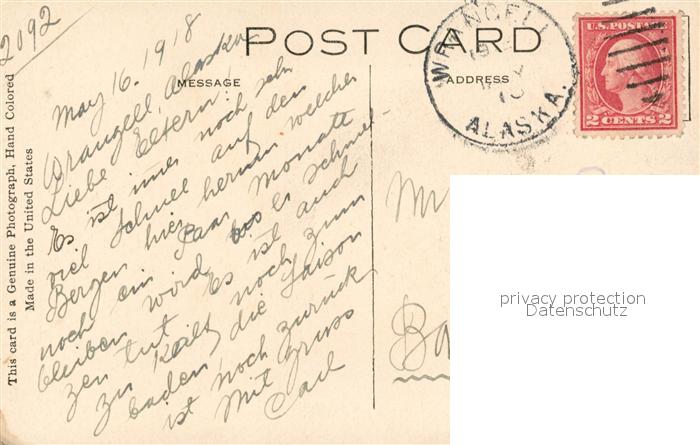 2092
POST CARD
MESSAGE
ADDRESS
WRANGELL
ALASKA.
U.S. POSTAGE
2 CENTS 2
This card is a Genuine Photograph, Hand Colored
Made in the United States
May 16. 1918
Wrangell, Alaska
Liebe Eltern!
Es ist immer noch sehr
viel Schnee auf den
Bergen hier herum welcher
noch ein Paar Monate
bleiben wird bis es schmel-
zen tut. Es ist auch
zu kalt noch zum
baden, die Saison
ist noch zurück
Mit Gruss
Carl
Mr
Ba
privacy protection
Datenschutz